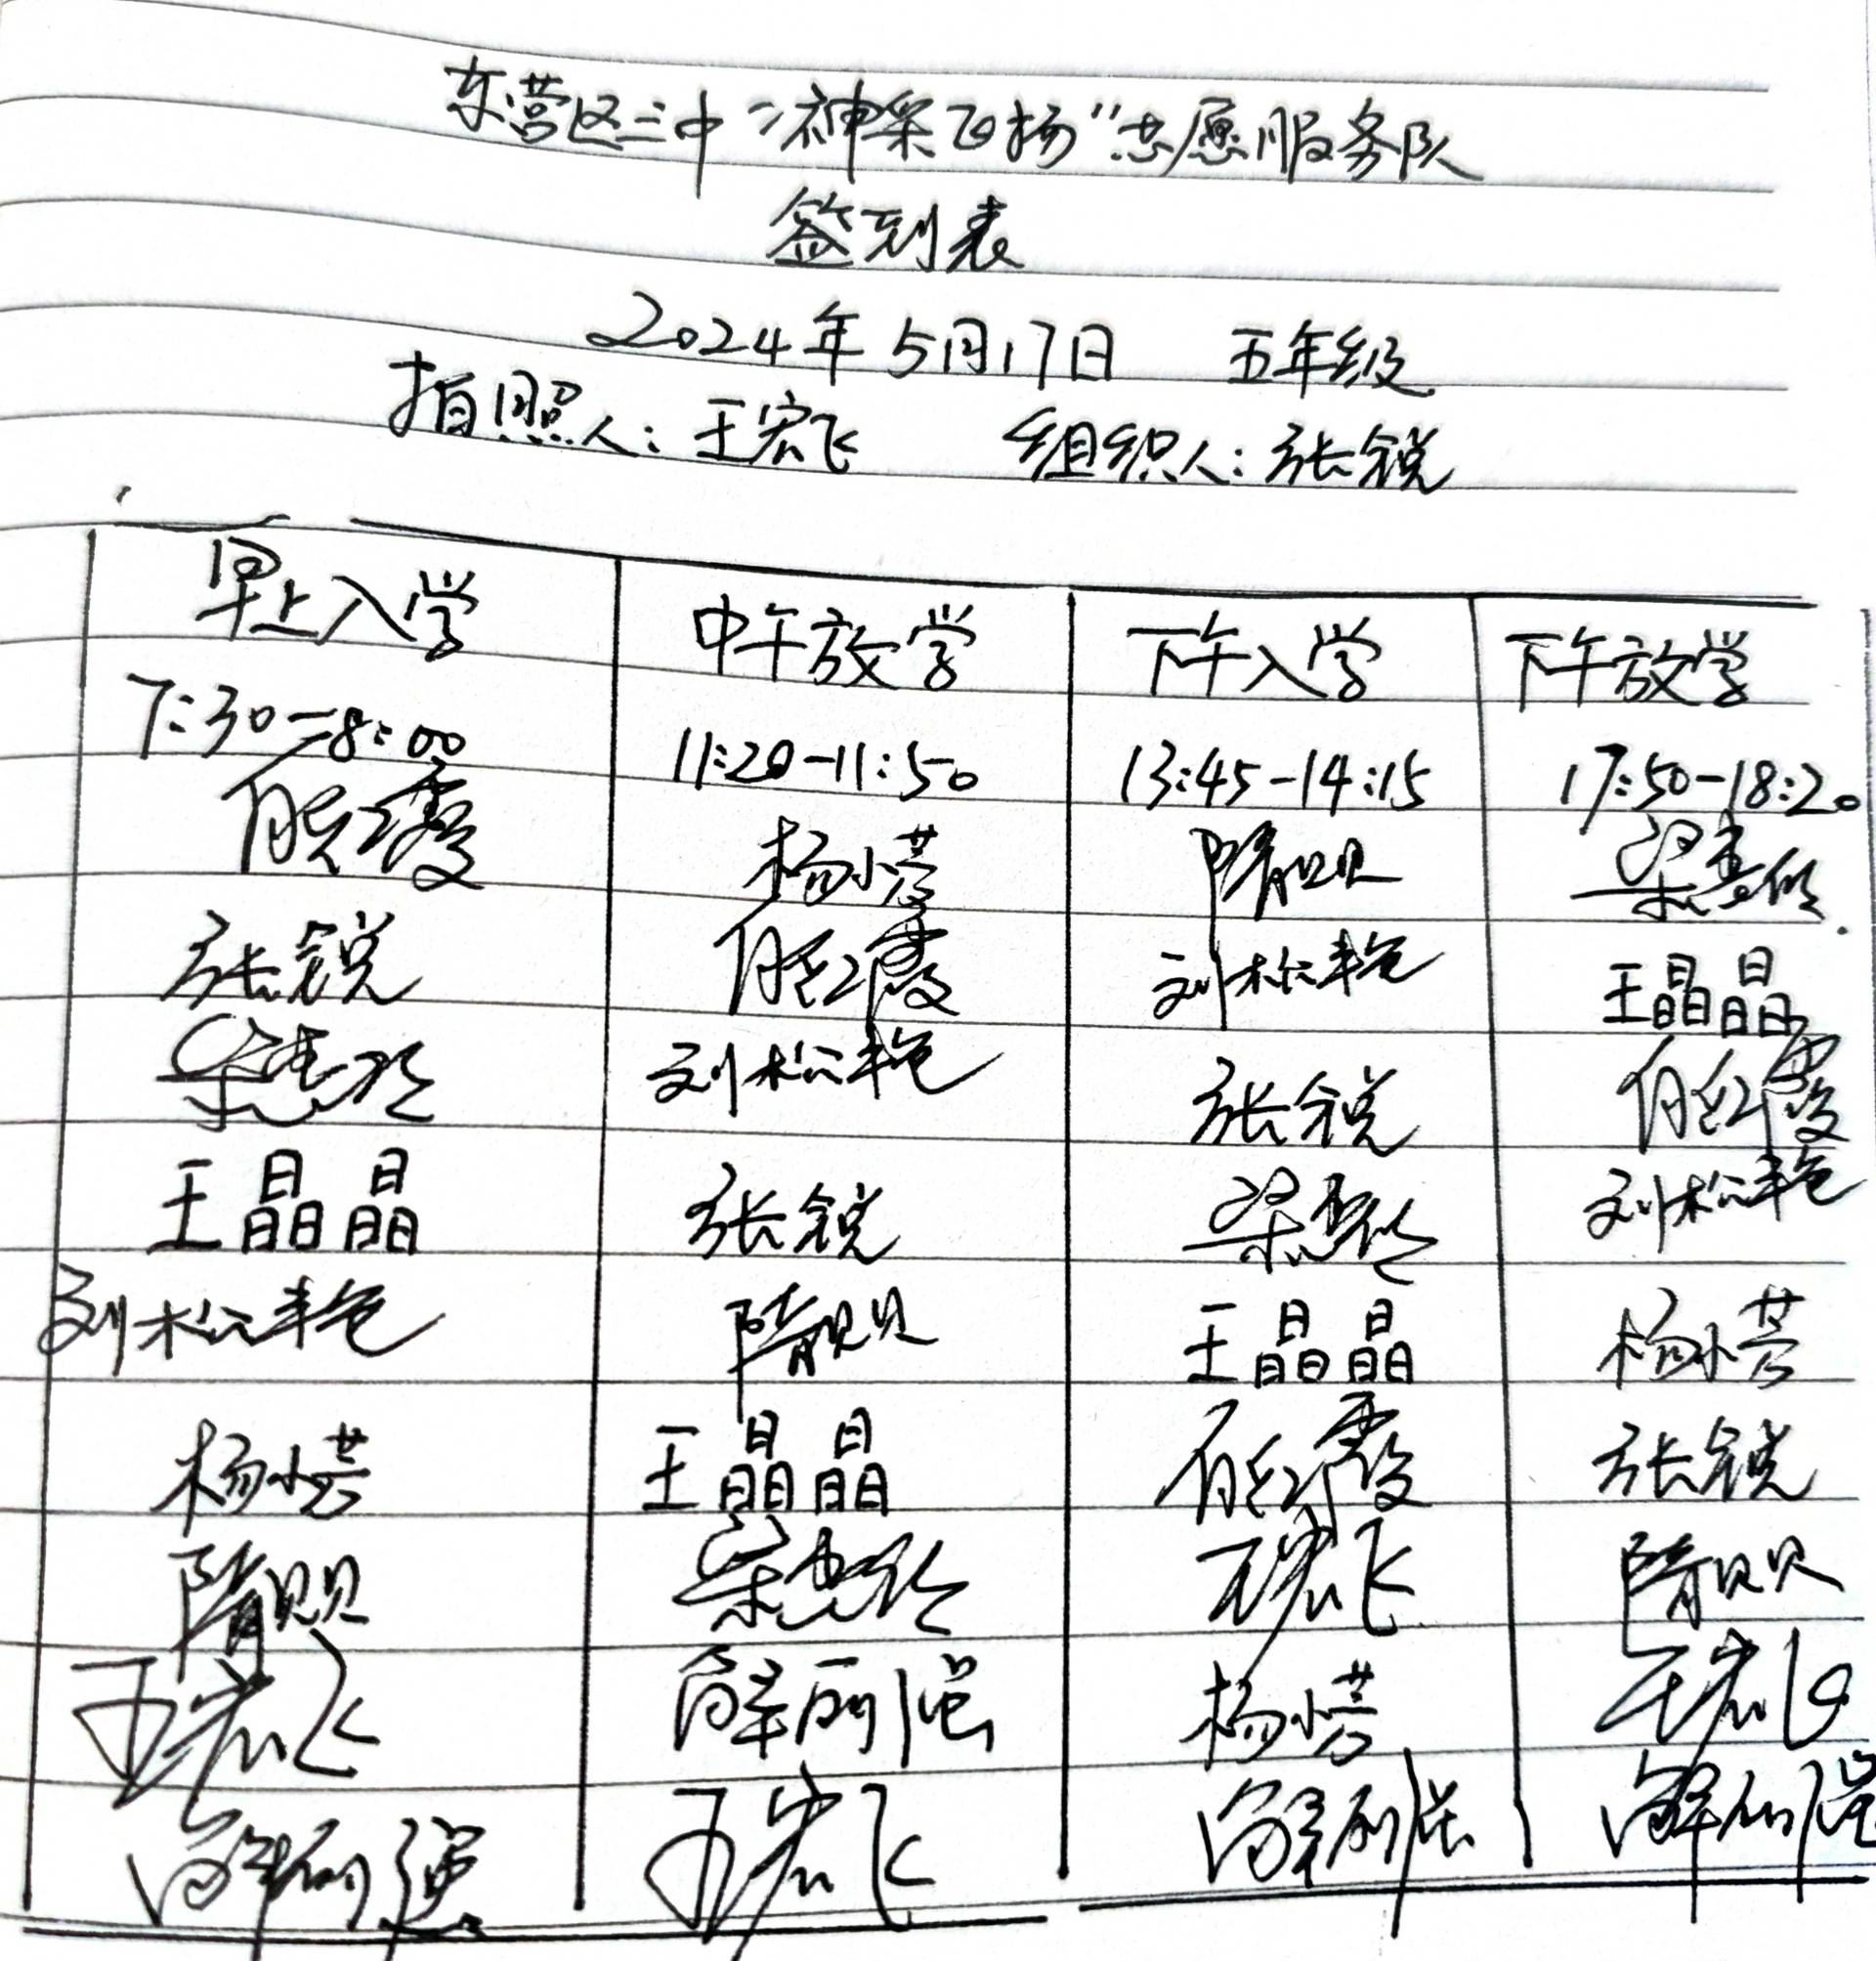 东营区三中“神采飞扬”志愿服务队
签到表
2024年5月17日 五年级
拍照人：王宏飞 组织人：张锐
早上入学 中午放学 下午入学 下午放学
7:30-8:00 11:20-11:50 13:45-14:15 17:50-18:20
任红霞 杨小芸 隋贝贝 梁惠玲
张锐 任红霞 刘松艳 王晶晶
梁惠玲 刘松艳 张锐 任红霞
王晶晶 张锐 梁惠玲 刘松艳
刘松艳 隋贝贝 王晶晶 杨小芸
杨小芸 王晶晶 任红霞 张锐
隋贝贝 梁惠玲 王宏飞 隋贝贝
王宏飞 解 杨小芸 王宏飞
解 王宏飞 解 解